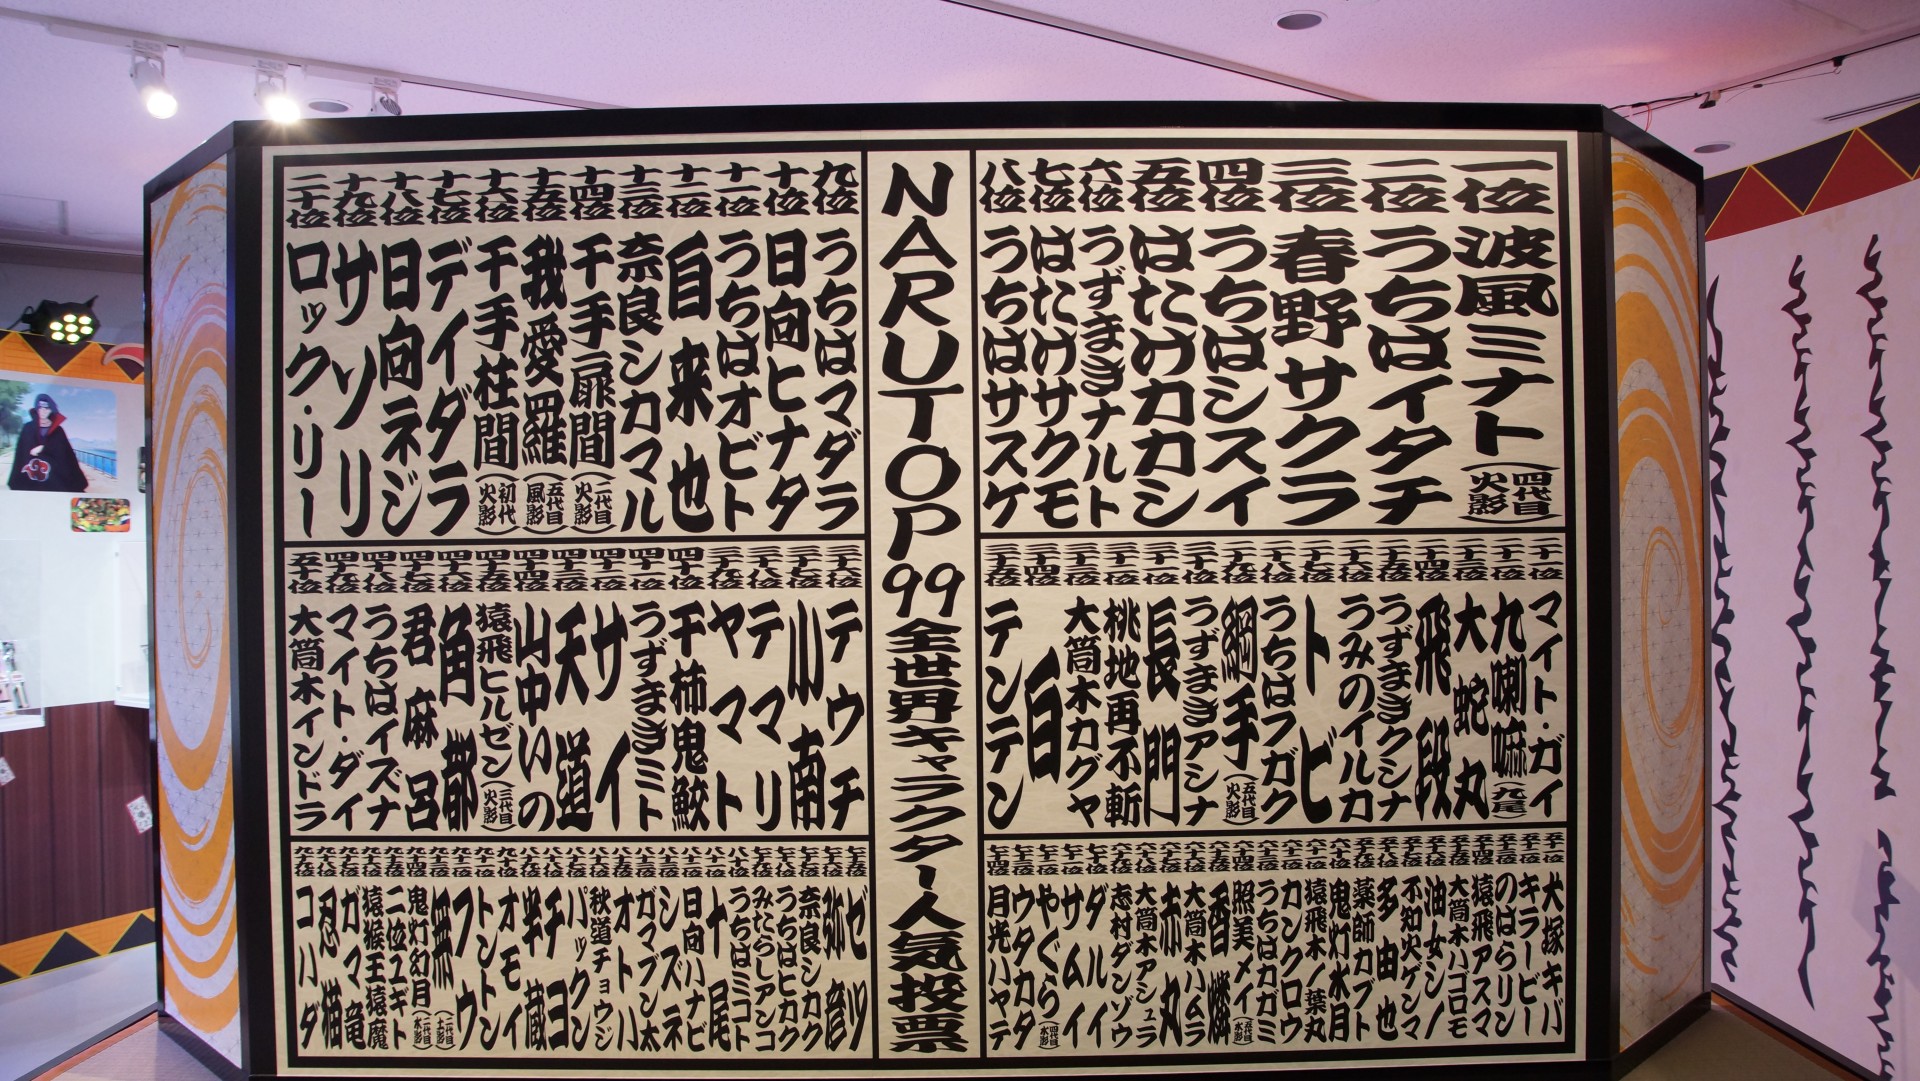 NARUTOP99全世界キャラクター人気投票
一位 波風ミナト(四代目火影)
二位 うちはイタチ
三位 春野サクラ
四位 うちはシスイ
五位 はたけカカシ
六位 うずまきナルト
七位 はたけサクモ
八位 うちはサスケ
九位 うちはマダラ
十位 日向ヒナタ
十一位 うちはオビト
十二位 自来也
十三位 奈良シカマル
十四位 千手扉間(二代目火影)
十五位 我愛羅(五代目風影)
十六位 千手柱間(初代火影)
十七位 デイダラ
十八位 日向ネジ
十九位 サソリ
二十位 ロック・リー
二十一位 マイト・ガイ
二十二位 九喇嘛(九尾)
二十三位 大蛇丸
二十四位 飛段
二十五位 うずまきクシナ
二十六位 うみのイルカ
二十七位 トビ
二十八位 うちはフガク
二十九位 綱手(五代目火影)
三十位 うずまきアシナ
三十一位 長門
三十二位 桃地再不斬
三十三位 大筒木カグヤ
三十四位 白
三十五位 テンテン
三十六位 テウチ
三十七位 小南
三十八位 テマリ
三十九位 ヤマト
四十位 干柿鬼鮫
四十一位 うずまきミト
四十二位 サイ
四十三位 天道
四十四位 山中いの
四十五位 猿飛ヒルゼン(三代目火影)
四十六位 角都
四十七位 君麻呂
四十八位 うちはイズナ
四十九位 マイト・ダイ
五十位 大筒木インドラ
五十一位 犬塚キバ
五十二位 キラービー
五十三位 のはらリン
五十四位 猿飛アスマ
五十五位 大筒木ハゴロモ
五十六位 油女シノ
五十七位 不知火ゲンマ
五十八位 多由也
五十九位 薬師カブト
六十位 鬼灯水月
六十一位 猿飛木ノ葉丸
六十二位 カンクロウ
六十三位 うちはカガミ
六十四位 照美メイ(五代目水影)
六十五位 香燐
六十六位 大筒木ハムラ
六十七位 赤丸
六十八位 大筒木アシュラ
六十九位 志村ダンゾウ
七十位 ダルイ
七十一位 サムイ
七十二位 やぐら(四代目水影)
七十三位 ウタカタ
七十四位 月光ハヤテ
七十五位 ゼツ
七十六位 弥彦
七十七位 奈良シカク
七十八位 うちはヒカク
七十九位 みたらしアンコ
八十位 うちはミコト
八十一位 十尾
八十二位 日向ハナビ
八十三位 シズネ
八十四位 ガマブン太
八十五位 オトハ
八十六位 秋道チョウジ
八十七位 パックン
八十八位 チヨ
八十九位 半蔵
九十位 オモイ
九十一位 トントン
九十二位 フウ
九十三位 無(二代目土影)
九十四位 鬼灯幻月(二代目水影)
九十五位 二位ユギト
九十六位 猿猴王猿魔
九十七位 ガマ竜
九十八位 忍猫
九十九位 コハダ